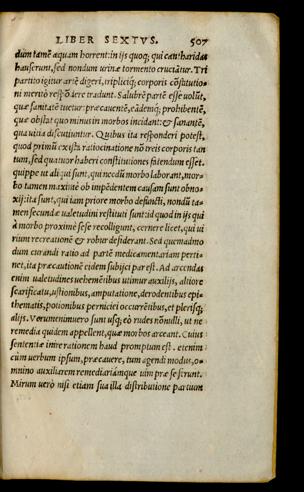 LIBER SEXTVS. 507
dum tamē aquam horrent: in ijs quoq; qui cantharidas
hauserunt, sed nondum urinæ tormento cruciātur. Tri
partito igitur artē digeri, tripliciq; corporis cōstitutio
ni meritò respōdere tradunt. Salubrē partē esse uolūt,
quæ sanitatē tuetur: præcauentē, eādemq; prohibentē,
quæ obstat quo minus in morbos incidant: & sanantē,
qua uitia discutiuntur. Quibus ita responderi potest,
quod primū ex ista ratiocinatione nō treis corporis tan
tum, sed quatuor haberi constitutiones fatendum esset.
quippe ut aliqui sunt, qui necdū morbo laborant, mor-
bo tamen maximè ob impēdentem causam sunt obno-
xij: ita sunt, qui iam priore morbo defuncti, nondū ta-
men secundæ ualetudini restituti sunt: id quod in ijs qui
à morbo proximè sese recolligunt, cernere licet, qui ui
rium recreationē & robur desiderant. Sed quemadmo
dum curandi ratio ad partē medicamentariam perti-
net, ita præcautionē eidem subijci par est. Ad arcendas
enim ualetudines uehemētibus utimur auxilijs, altiore
scarificatu, ustionibus, amputatione, derodentibus epi-
thematis, potionibus perniciei occurrētibus, et plerisq;
alijs. Verumenimuero sunt usq; eò rudes nōnulli, ut ne
remedia quidem appellent, quæ morbos arceant. Cuius
sententiæ inire rationem haud promptum est. etenim
cùm uerbum ipsum, præcauere, tum agendi modus, o-
mnino auxiliarem remediariámque uim præ se ferunt.
Mirum uerò nisi etiam sua illa distributione partium